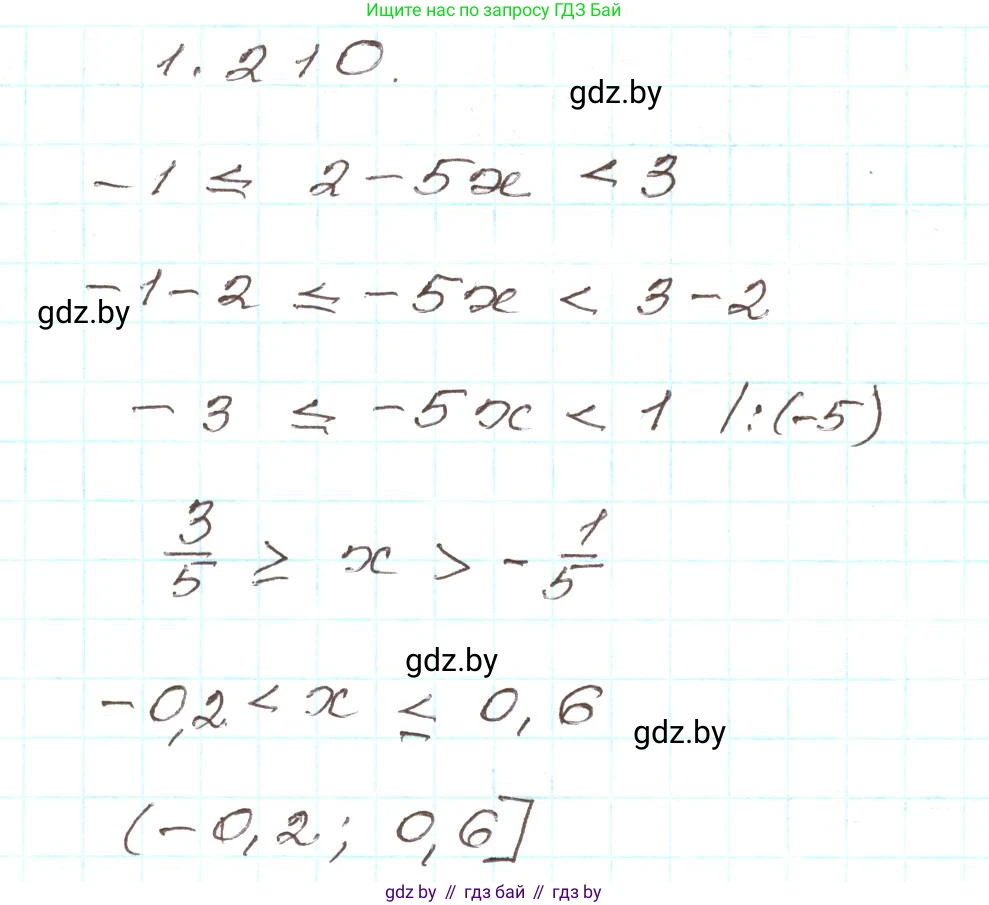 Ищите нас по запросу ГДЗ Бай
1.210.
gdz.by
-1 ≤ 2-5x < 3
-1-2 ≤ -5x < 3-2
gdz.by
-3 ≤ -5x < 1 /:(-5)
3/5 ≥ x > -1/5
gdz.by
-0,2 < x ≤ 0,6
gdz.by
(-0,2; 0,6]
gdz.by // гдз бай // гдз by